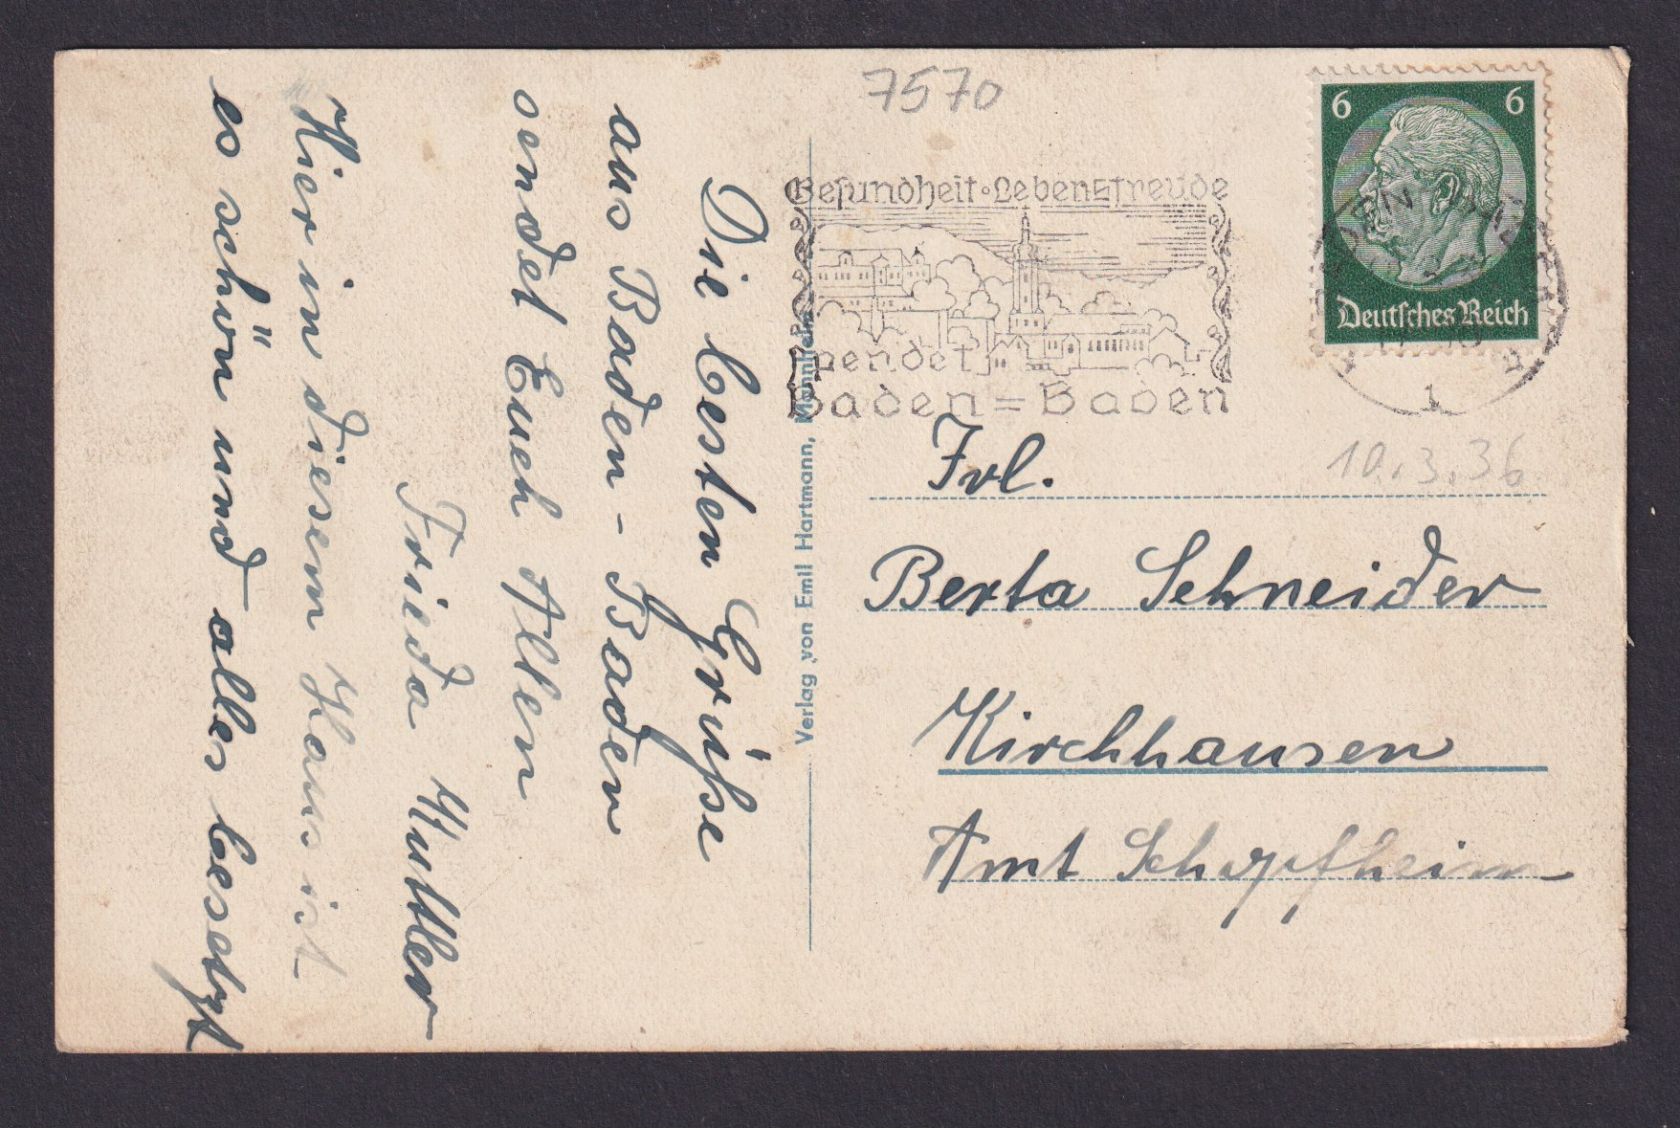 7570
Gesundheit · Lebensfreude
spendet
Baden=Baden
6 6
Deutsches Reich
1
10.3.36
Die besten Grüße
aus Baden-Baden
sendet Euch Allen
Frieda
Hier in diesem Haus ist
es schön und alles besetzt
Verlag von Emil Hartmann, Mannheim
Frl.
Berta Schneider
Kirchhausen
Amt Schopfheim